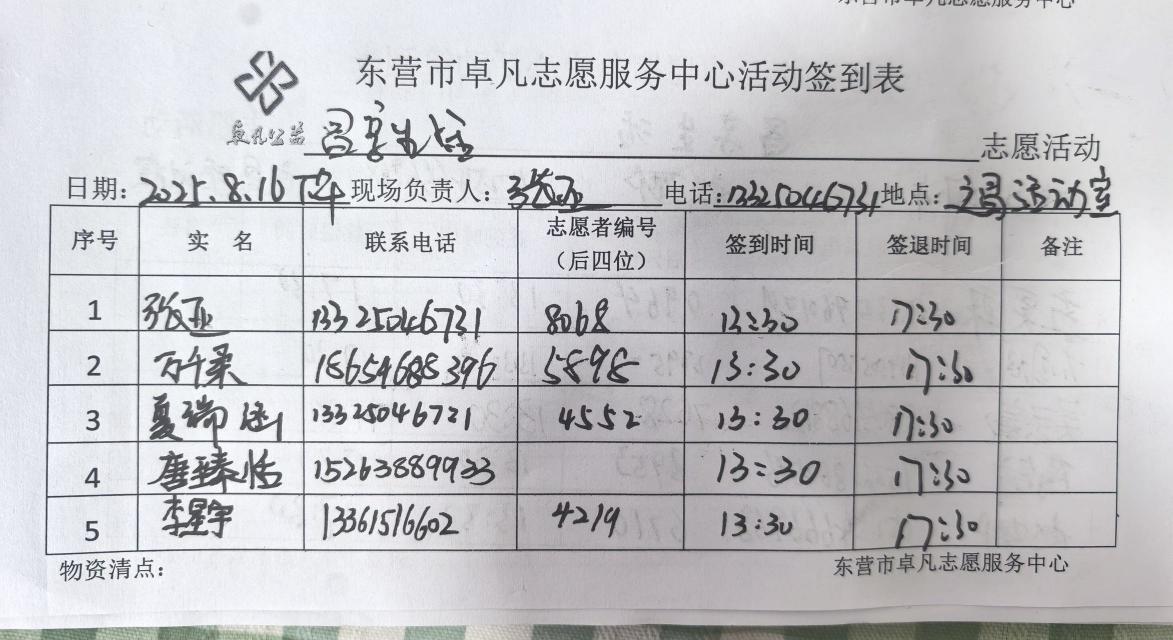 东营市卓凡志愿服务中心
东营市卓凡志愿服务中心活动签到表
卓凡公益
志愿活动
日期：2025.8.16 下午 现场负责人：张亚 电话：13325046731 地点：活动室
序号 实 名 联系电话 志愿者编号（后四位） 签到时间 签退时间 备注
1 张亚 13325046731 8068 13:30 17:30
2 万千柔 18654688396 5898 13:30 17:30
3 夏瑞 13325046721 4552 13:30 17:30
4 唐臻恬 15263889933 13:30 17:30
5 李星宇 13361516602 4219 13:30 17:30
物资清点： 东营市卓凡志愿服务中心